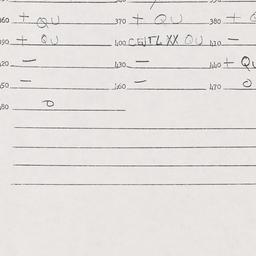 360 + QU 370 + QU 380 +
390 + QU 400 CEITL XX QU 410 –
420 – 430 – 440 + QU
450 – 460 – 470 0
480 0